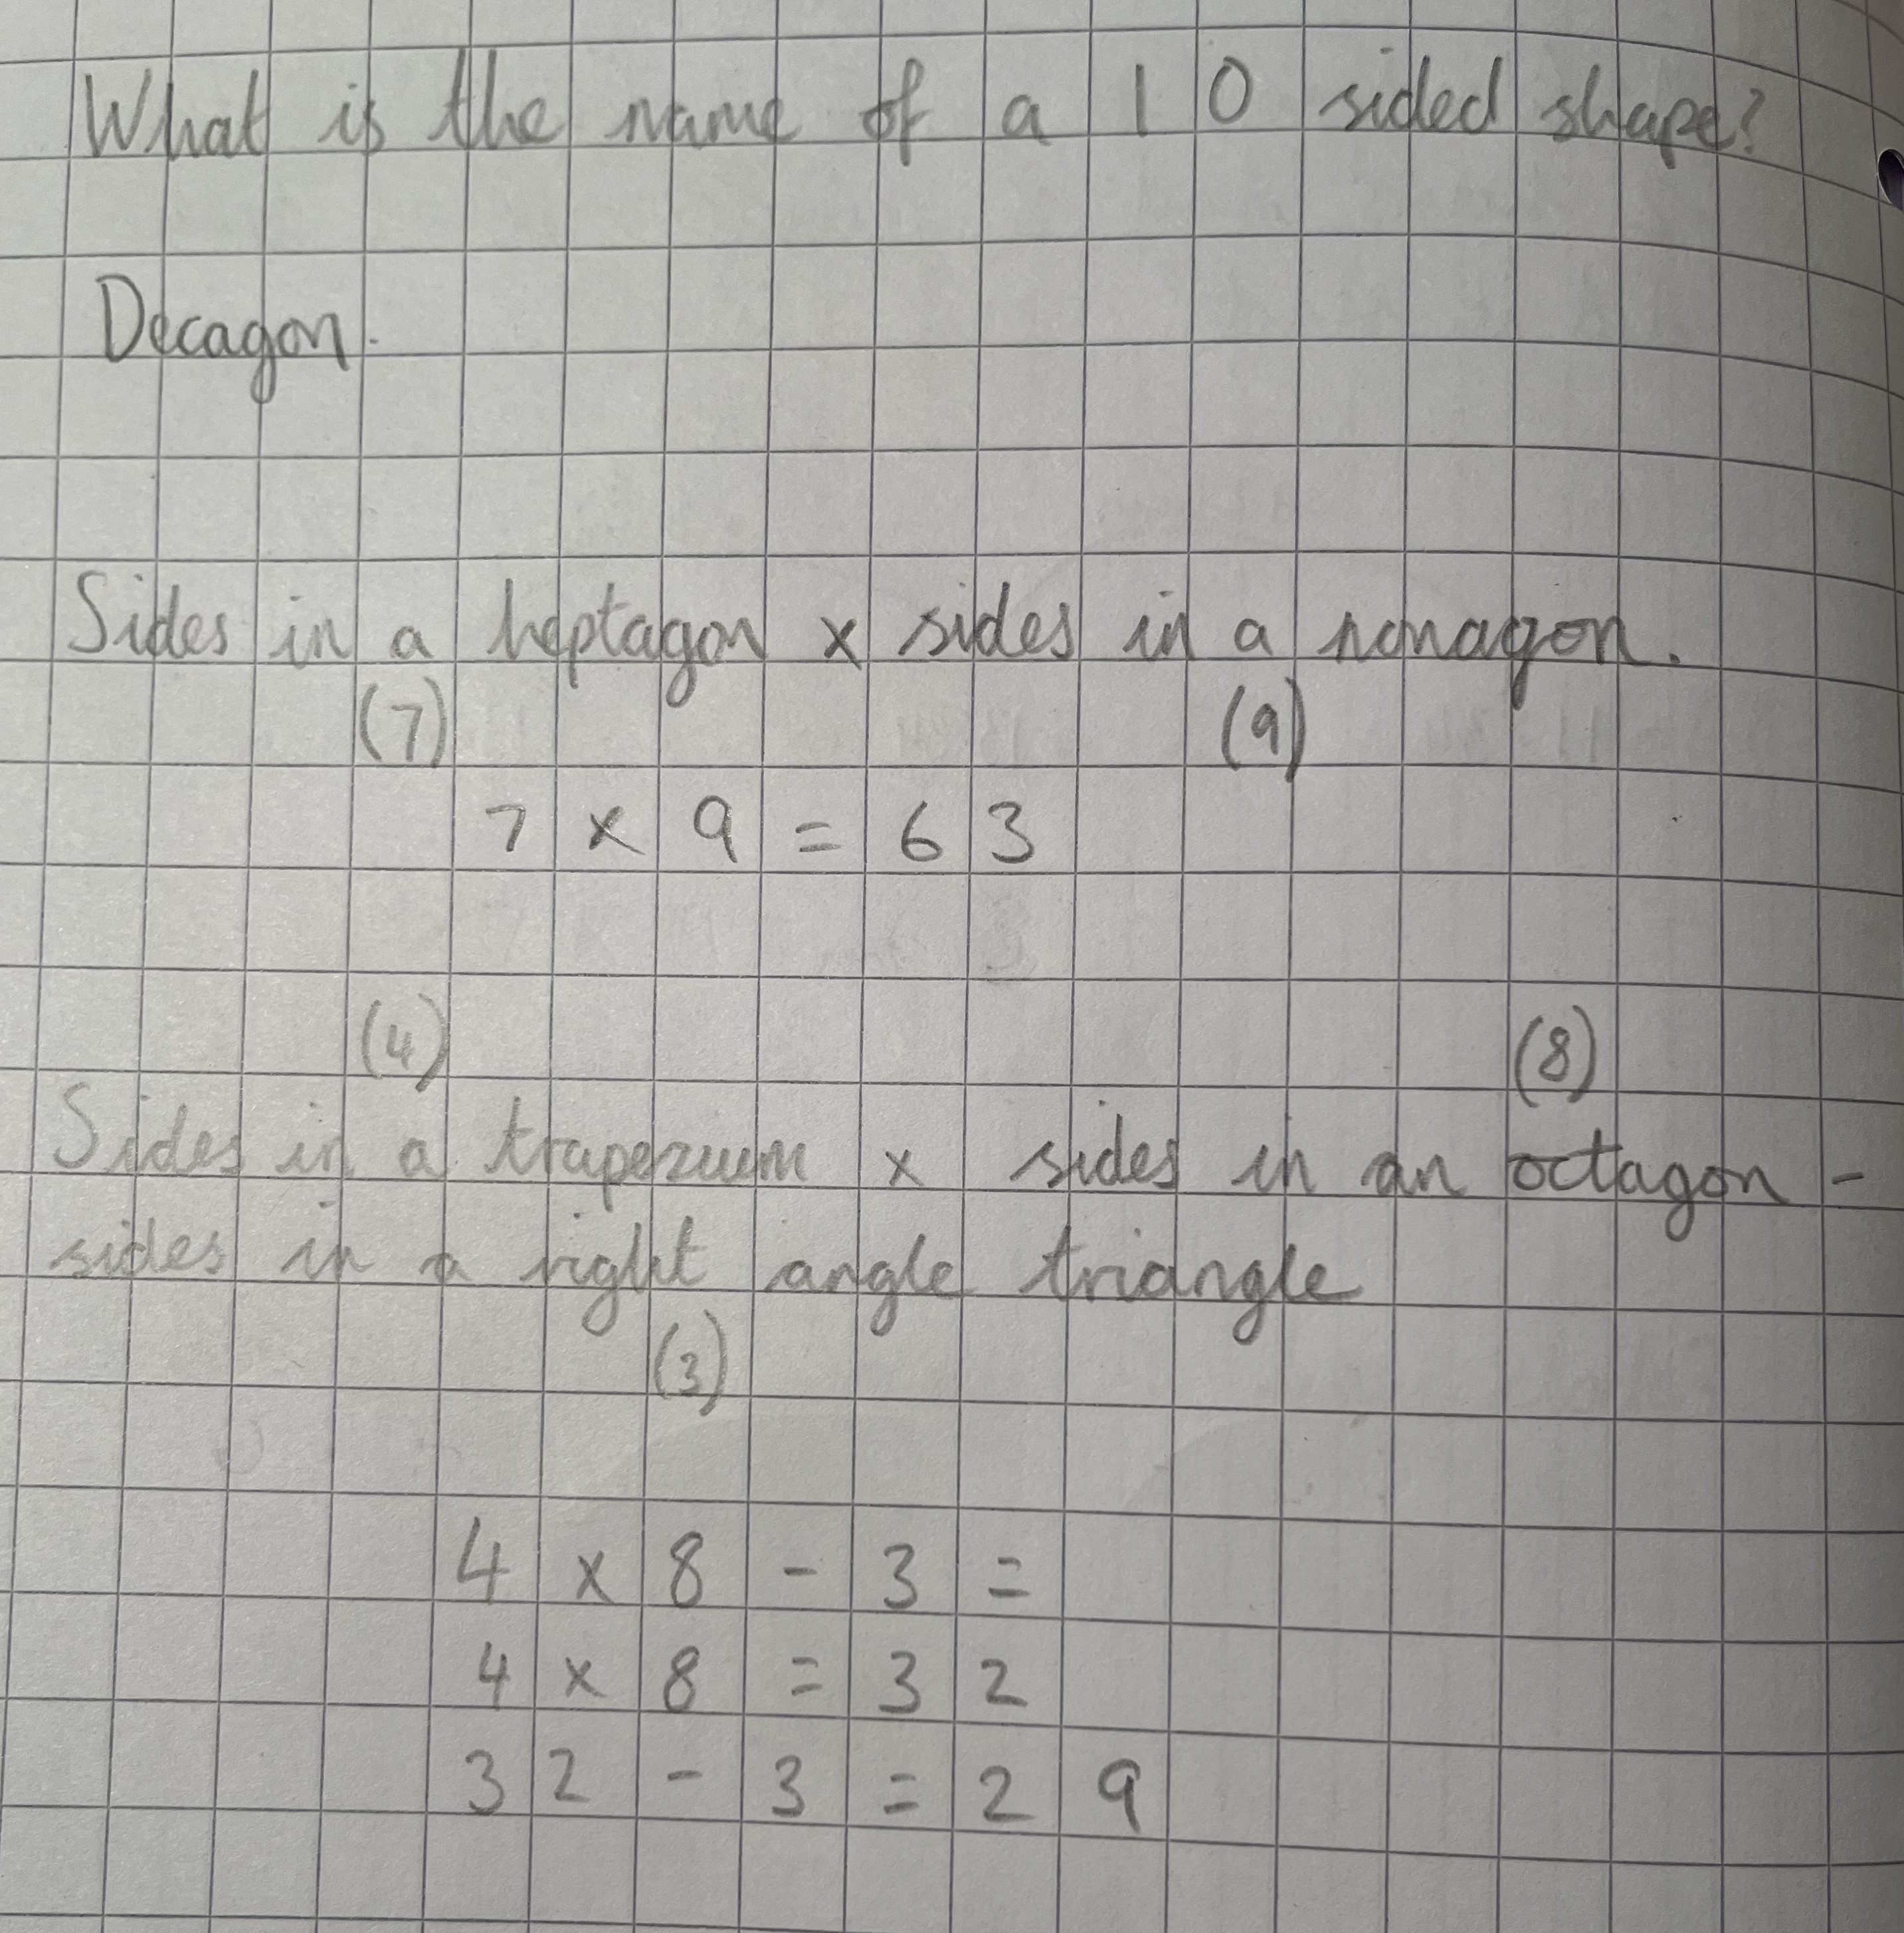 What is the name of a 10 sided shape?
Decagon.
Sides in a heptagon x sides in a nonagon.
(7) (9)
7 x 9 = 63
(4) (8)
Sides in a trapezium x sides in an octagon -
sides in a right angle triangle
(3)
4 x 8 - 3 =
4 x 8 = 32
32 - 3 = 29